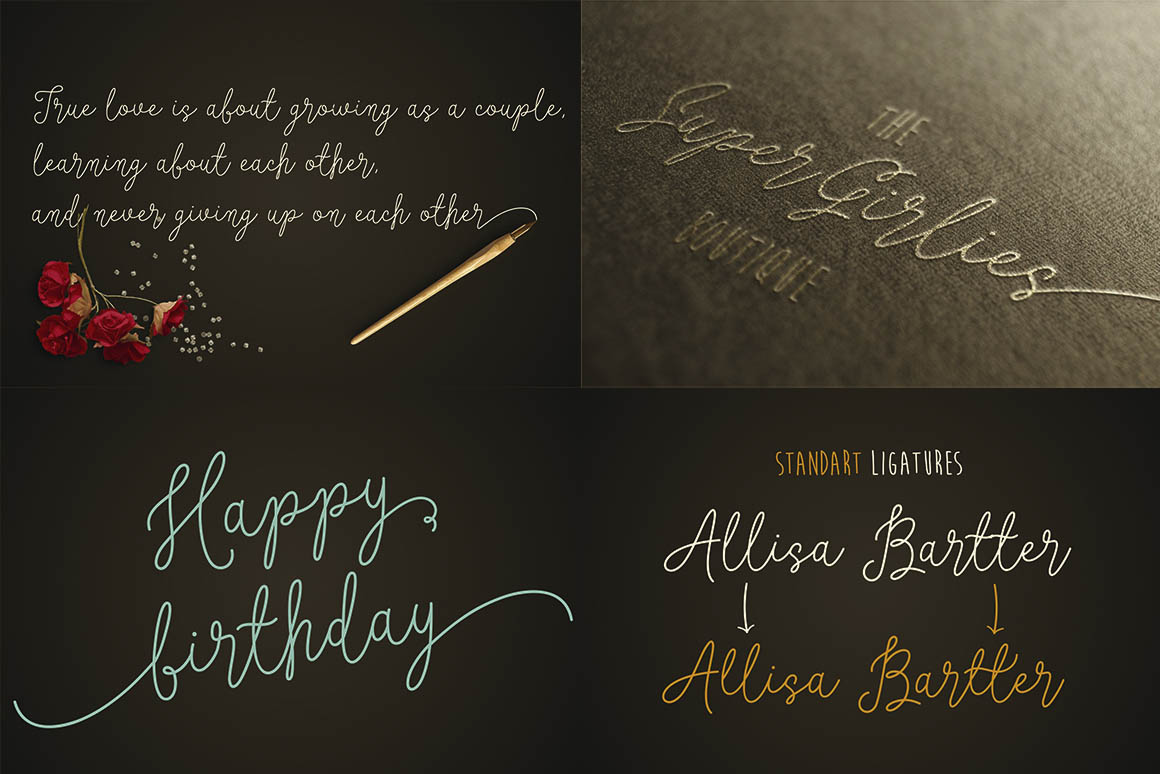 True love is about growing as a couple,
learning about each other,
and never giving up on each other
THE
Super Girlies
BOUTIQUE
Happy
birthday
STANDART LIGATURES
Allisa Bartter
Allisa Bartter